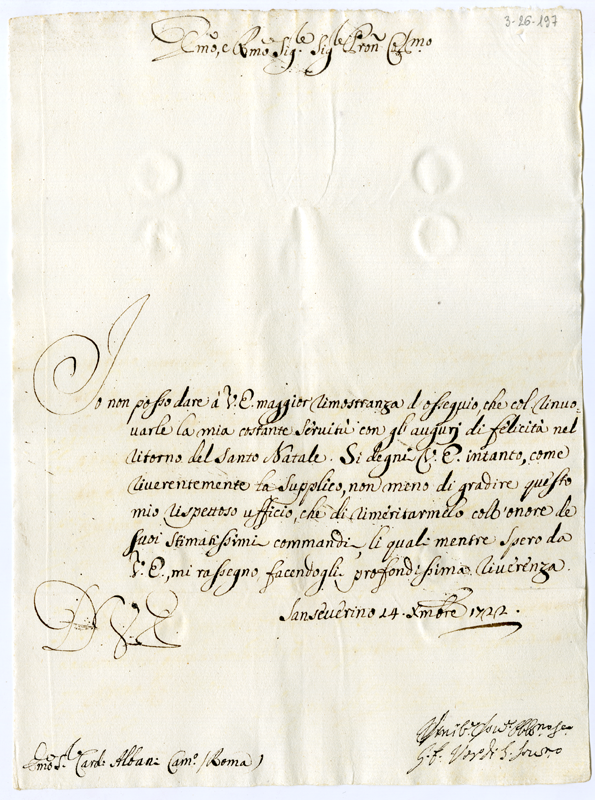 3-26-197
Emo, e Rmo Sig.r Sig.r Pron Colmo
Io non posso dare à V.E. maggior dimostranza d'ossequio, che col rinuo-
varle la mia costante servitù con gli augurj di felicità nel
ritorno del Santo Natale. Si degni V.E. intanto, come
riverentemente la supplico, non meno di gradire questo
mio rispettoso ufficio, che di rimeritarmelo coll'onore de
suoi stimatissimi commandi, li quali mentre spero da
V.E., mi rassegno facendogli profondissima riverenza.
D.V.E.
Sanseverino 24 Xmbre 1722.
Emo S.r Card: Albani Cam.o (Roma)